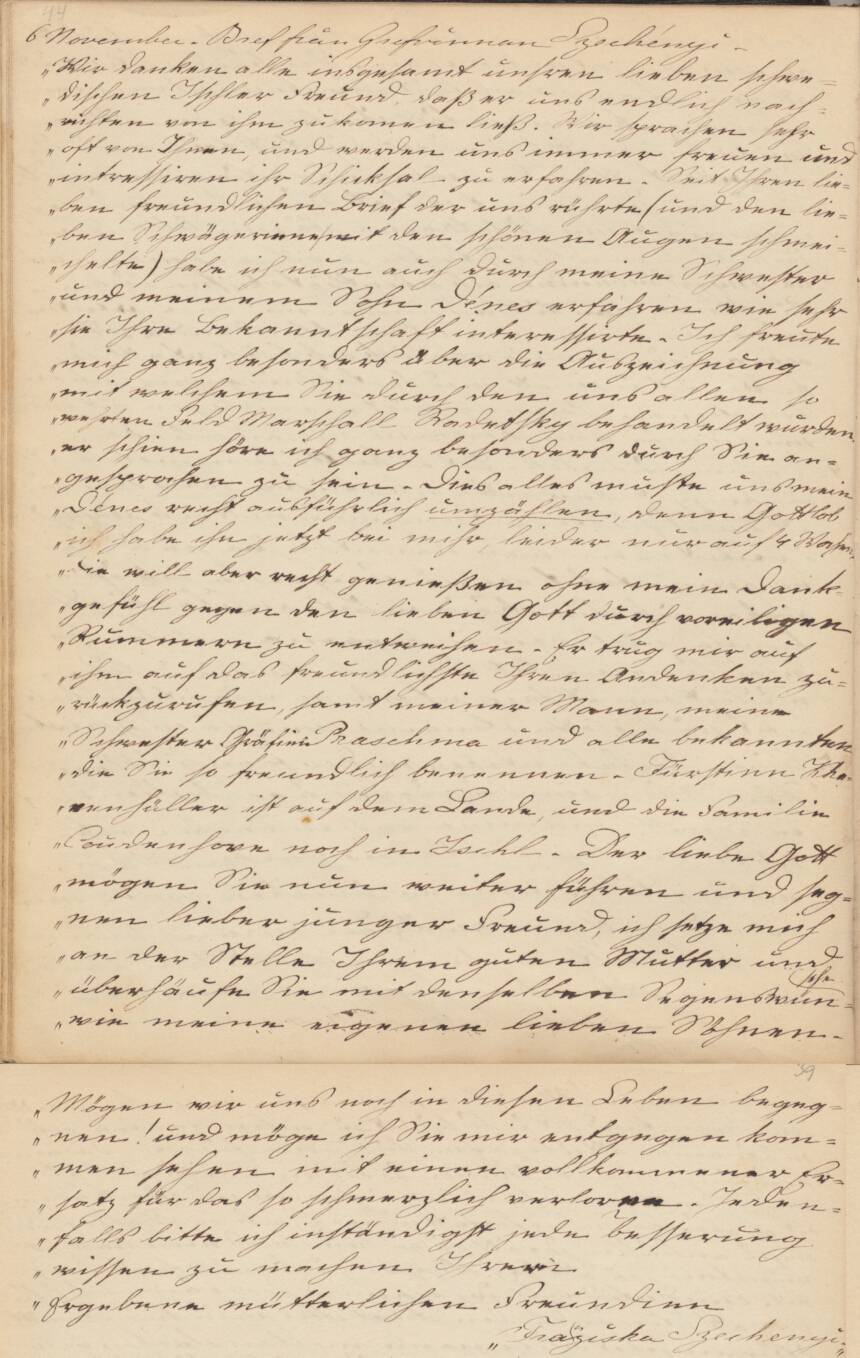 44
6 November. Bref från Grefvinnan Szechényi.
„Wir danken alle insgesamt unsren lieben schwe=
„dischen Ischler Freund, daß er uns endlich nach=
„richten von ihm zukomen ließ. Wir sprachen sehr
„oft von Ihnen, und werden uns immer freuen und
„intressiren ihr Schicksal zu erfahren. Seit Ihren lie=
„ben freundlichen Brief der uns rührte (und den lie=
„ben Schwägerinnen mit den schönen Augen schmei=
„chelte) habe ich nun auch durch meine Schwester
„und meinem Sohn Dénes erfahren wie sehr
„sie Ihre Bekanntschaft interessirte. Ich freute
„mich ganz besonders über die Auszeichnung
„mit welchem Sie durch den uns allen so
„wehrten Feld Marschall Radetsky behandelt wurden.
„er schien höre ich ganz besonders durch Sie an=
„gesprochen zu sein. Dies alles muste uns mein
„Dénes recht ausführlich umzählen, denn Gottlob
„ich habe ihn jetzt bei mihr, leider nur auf 4 Wochen.
„Sie will aber recht genießen ohne mein Dank=
„gefühl gegen den lieben Gott durch voreiligen
„Kummern zu entweihen. Er trug mir auf
„ihm auf das freundlichste Ihren Andenken zu=
„rückzurufen, samt meiner Mann, meine
„Schwester Gräfinn Praschma und alle bekannten
„die Sie so freundlich benennen. Fürstinn Khe=
„venhüller ist auf dem Lande, und die Familie
„Coudenhove noch in Ischl. Der liebe Gott
„mögen Sie nun weiter führen und seg=
„nen lieber junger Freund, ich setze mich
„an der Stelle Ihrem guten Mutter und
„überhäufe Sie mit denselben Segenswün=sche
„wie meine eigenen lieben Söhnen.
39
„Mögen wir uns noch in diesen Leben begeg=
„nen! und möge ich Sie mir entgegen kom=
„men sehen mit einen vollkommener Er=
„satz für das so schmerzlich verloren. Jeden=
„falls bitte ich inständigst jede besserung
„wissen zu machen Ihrer
„Ergebene mütterlichen Freundinn
„Franziska Szechenyi."